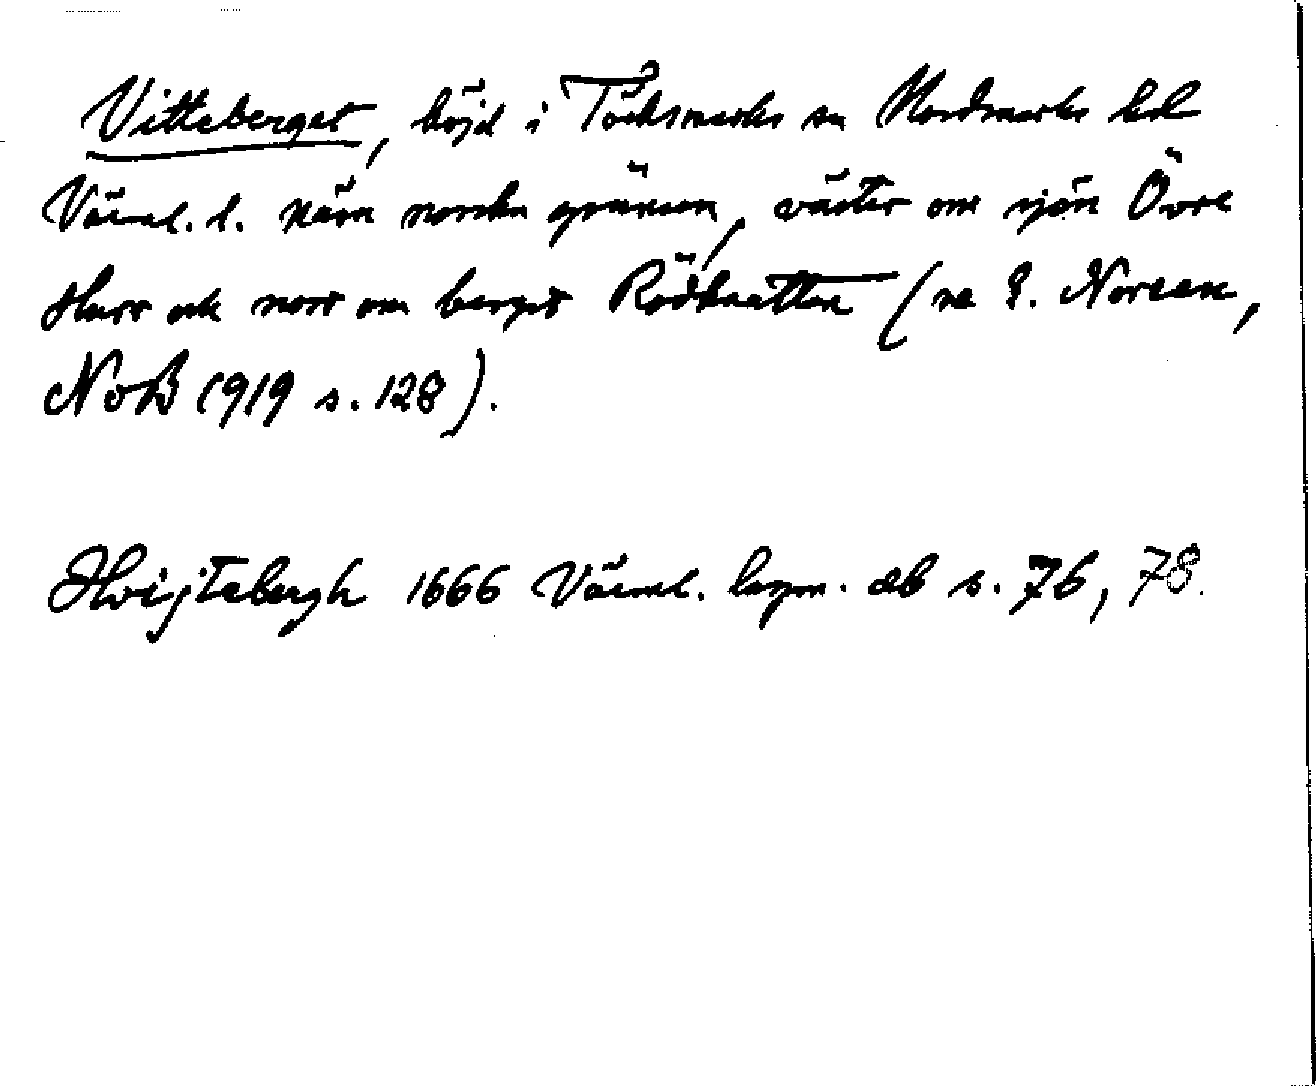 Vitteberget, höjd i Töcksmarks sn Nordmarks hd
Värml. l. nära norska gränsen, väster om sjön Övre
Hurr och norr om berget Rödknatten (se E. Noreen,
NoB 1919 s. 128).
Hvijtebergh 1666 Värml. lagm. db s. 76, 78.